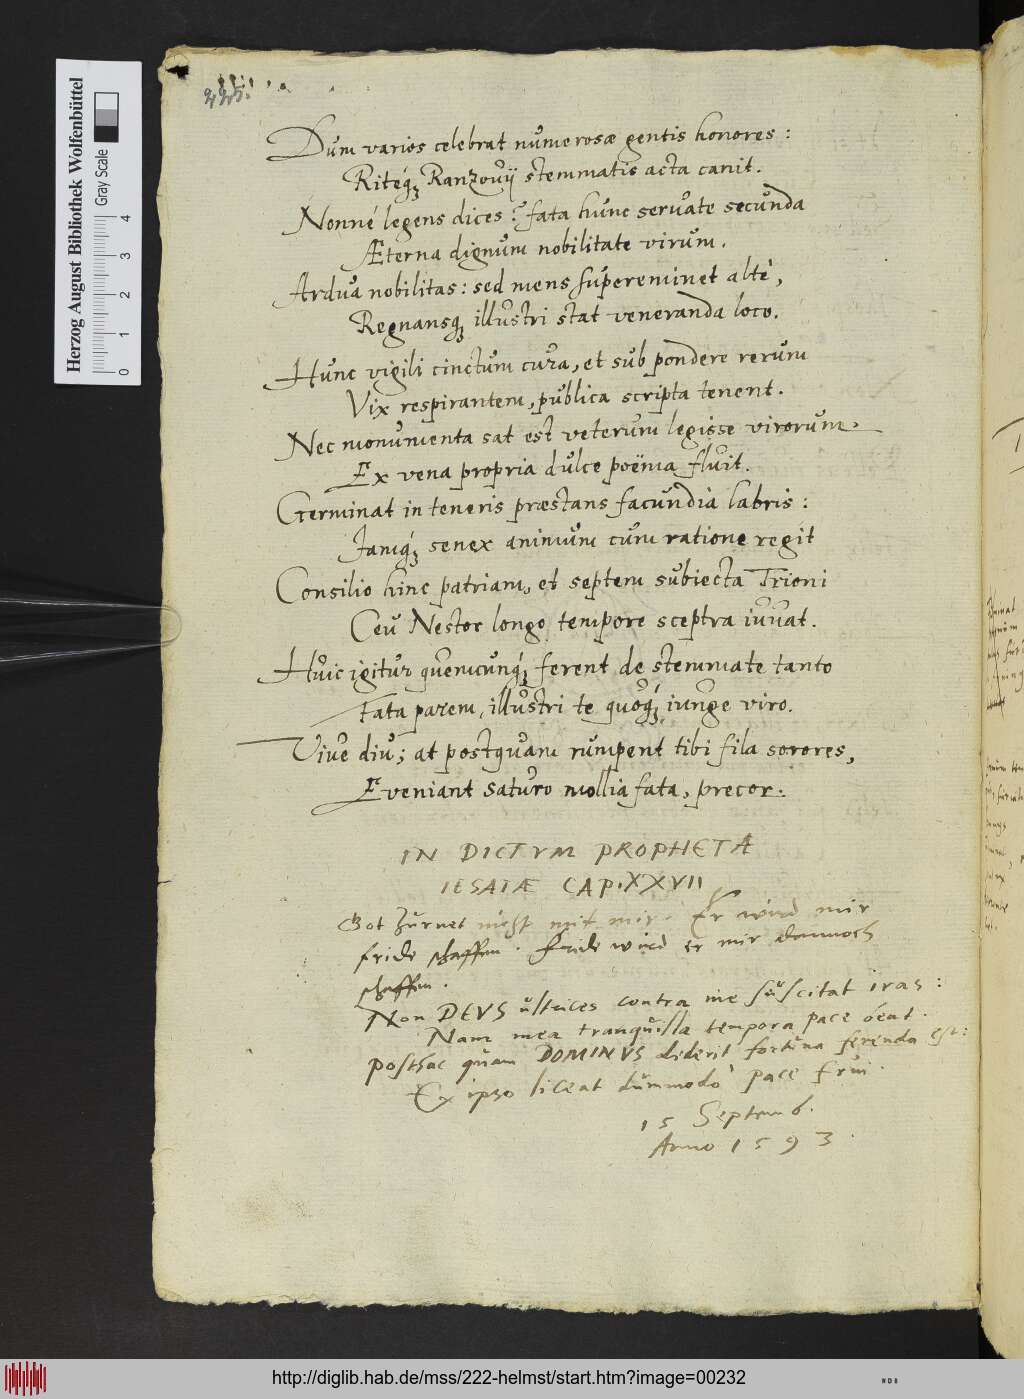 225.
Dum varios celebrat numerosæ gentis honores:
Riteq́ꝫ Ranzovij stemmatis acta canit.
Nonné legens dices? fata hunc servate secunda
Æterna dignum nobilitate virum.
Ardua nobilitas: sed mens súpereminet altè,
Regnansqꝫ illustri stat veneranda loco.
Hunc vigili cinctum cura, et sub pondere rerum
Vix respirantem, publica scripta tenent.
Nec monumenta sat est veterum legisse virorum.
Ex vena propria dulce poëma fluit.
Germinat in teneris præstans facundia labris:
Jamq́ꝫ senex animum cum ratione regit
Consilio hinc patriam, et septem subiecta Trioni
Ceu Nestor longo tempore sceptra iuvat.
Huic igitur quemcunq́ꝫ ferent de stemmate tanto
Fata parem, illustri te quoq́ꝫ iunge viro.
Vive diu; at postquam rumpent tibi fila sorores,
Eveniant saturo mollia fata, precor.
IN DICTVM PROPHETÆ
IESAIÆ CAP. XXVII
Got Zurnet nicht mit mir. Er wird mir
fride schaffen. Fride wird er mir dannoch
schaffen.
Non DEVS ultrices contra me suscitat iras:
Nam mea tranquilla tempora pace beat.
posthac quam DOMINVS diderit fortuna ferenda est:
Ex ipso liceat dummodò pace frui.
15 Septemb.
Anno 1593.
Herzog August Bibliothek Wolfenbüttel
Gray Scale
0 1 2 3 4
http://diglib.hab.de/mss/222-helmst/start.htm?image=00232